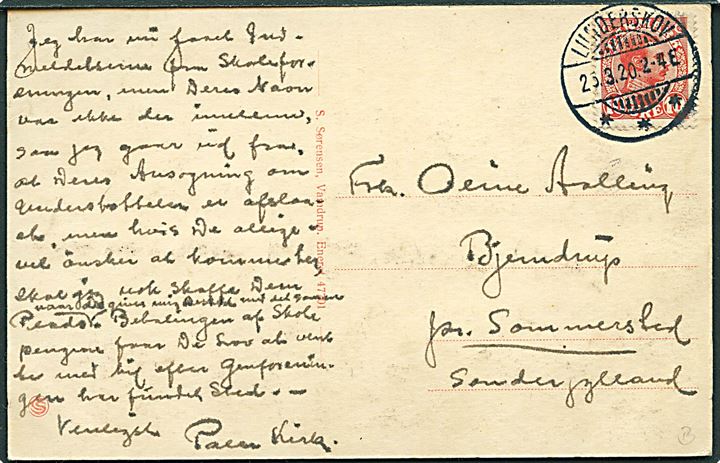 Jeg har nu faaet Ind-
meldelserne fra Skolefor-
eningen, men Deres Navn
var ikke der imellem,
saa jeg gaar ud fra,
at Deres Ansøgning om
Understøttelse er afslaa
et, men hvis De allige-
vel ønsker at komme her,
skal jeg nok skaffe Dem
naar De giver mig Besked med det samme
Plads. Betalingen af Skole
pengene faar De Lov at vent
te med til efter Genforenin-
gen har fundet Sted. -
Venligst Palle Kirk.
S. Sørensen, Vamdrup. Eneret
LUNDERSKOV
23.3.20. 2-4 E
Frk. Oline Aalling
Bjerndrup
pr. Sommersted
Sønderjylland
S
B